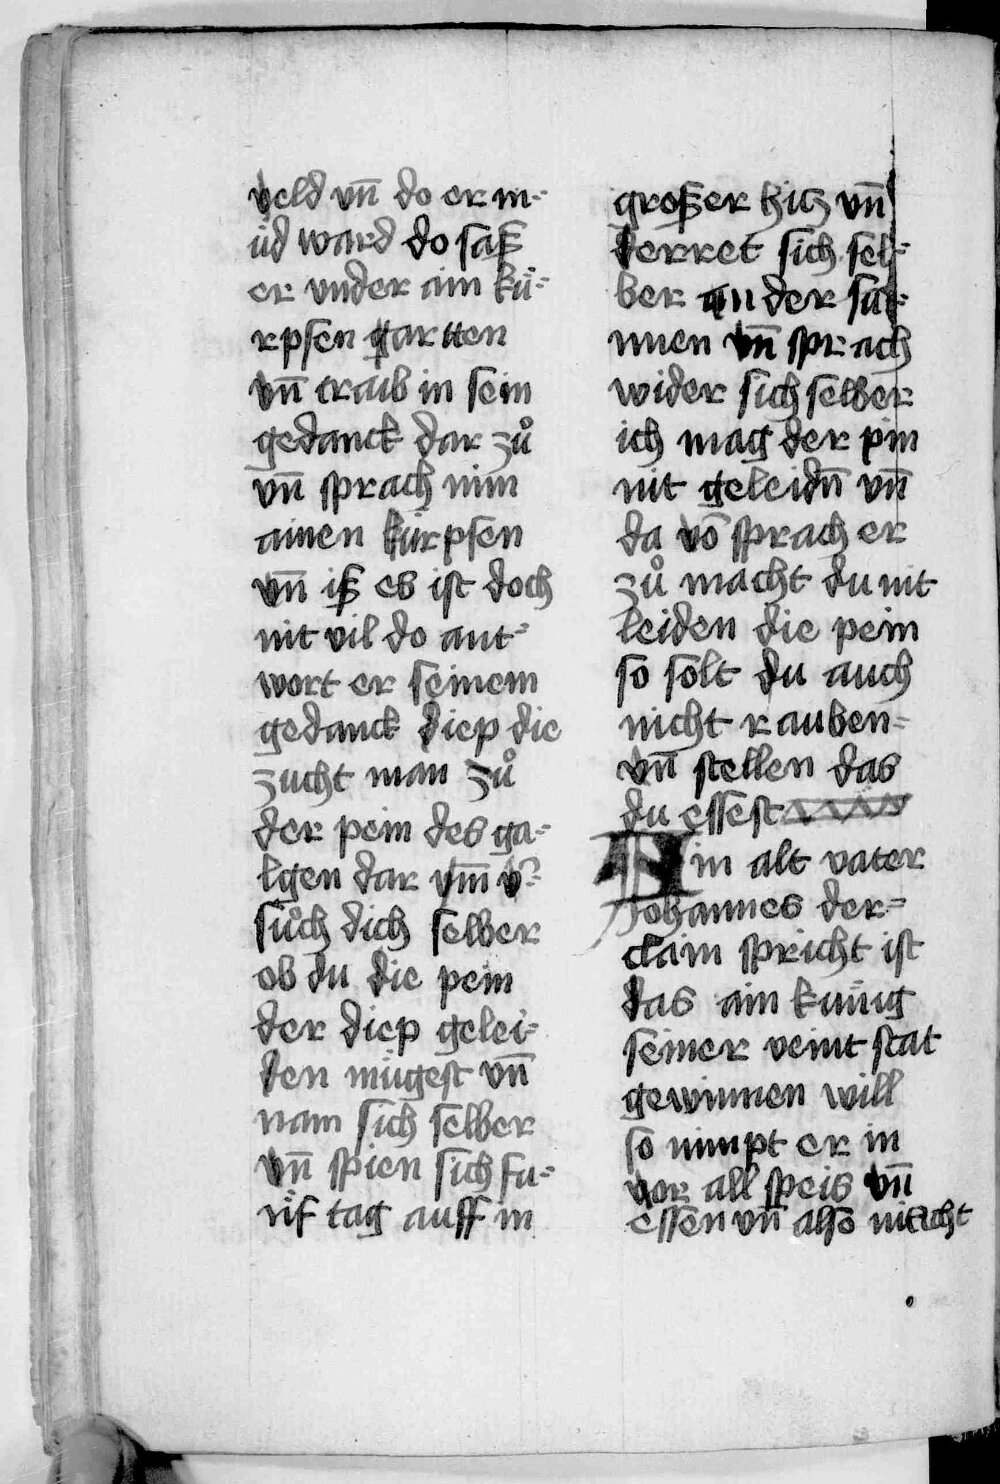 veld vn̄ do er m-
üd ward do saß
er vnder ain kü-
rpsen gartten
vn̄ traib in sein
gedanck dar zů
vn̄ sprach nim
ainen kürpsen
vn̄ iß es ist doch
nit vil do ant-
wort er seinem
gedanck diep die
zucht man zů
der pein des ga-
lgen dar vm̄ v̄-
sůch dich selber
ob du die pein
der diep gelei-
den mügest vn̄
nam sich selber
vn̄ spien sich fu-
nf tag auff in
großer hitz vn̄
derret sich sel-
ber an der sun-
nen vn̄ sprach
wider sich selber
ich mag der pin
nit geleidn̄ vn̄
da vō sprach er
zů macht du nit
leiden die pein
so solt du auch
nicht rauben-
vn̄ stellen das
du essest
Ain alt vater
Johannes der-
clain spricht ist
das ain kunig
seiner veint stat
gewinnen will
so nimpt er in
vor all speis vn̄
essen vn̄ also macht